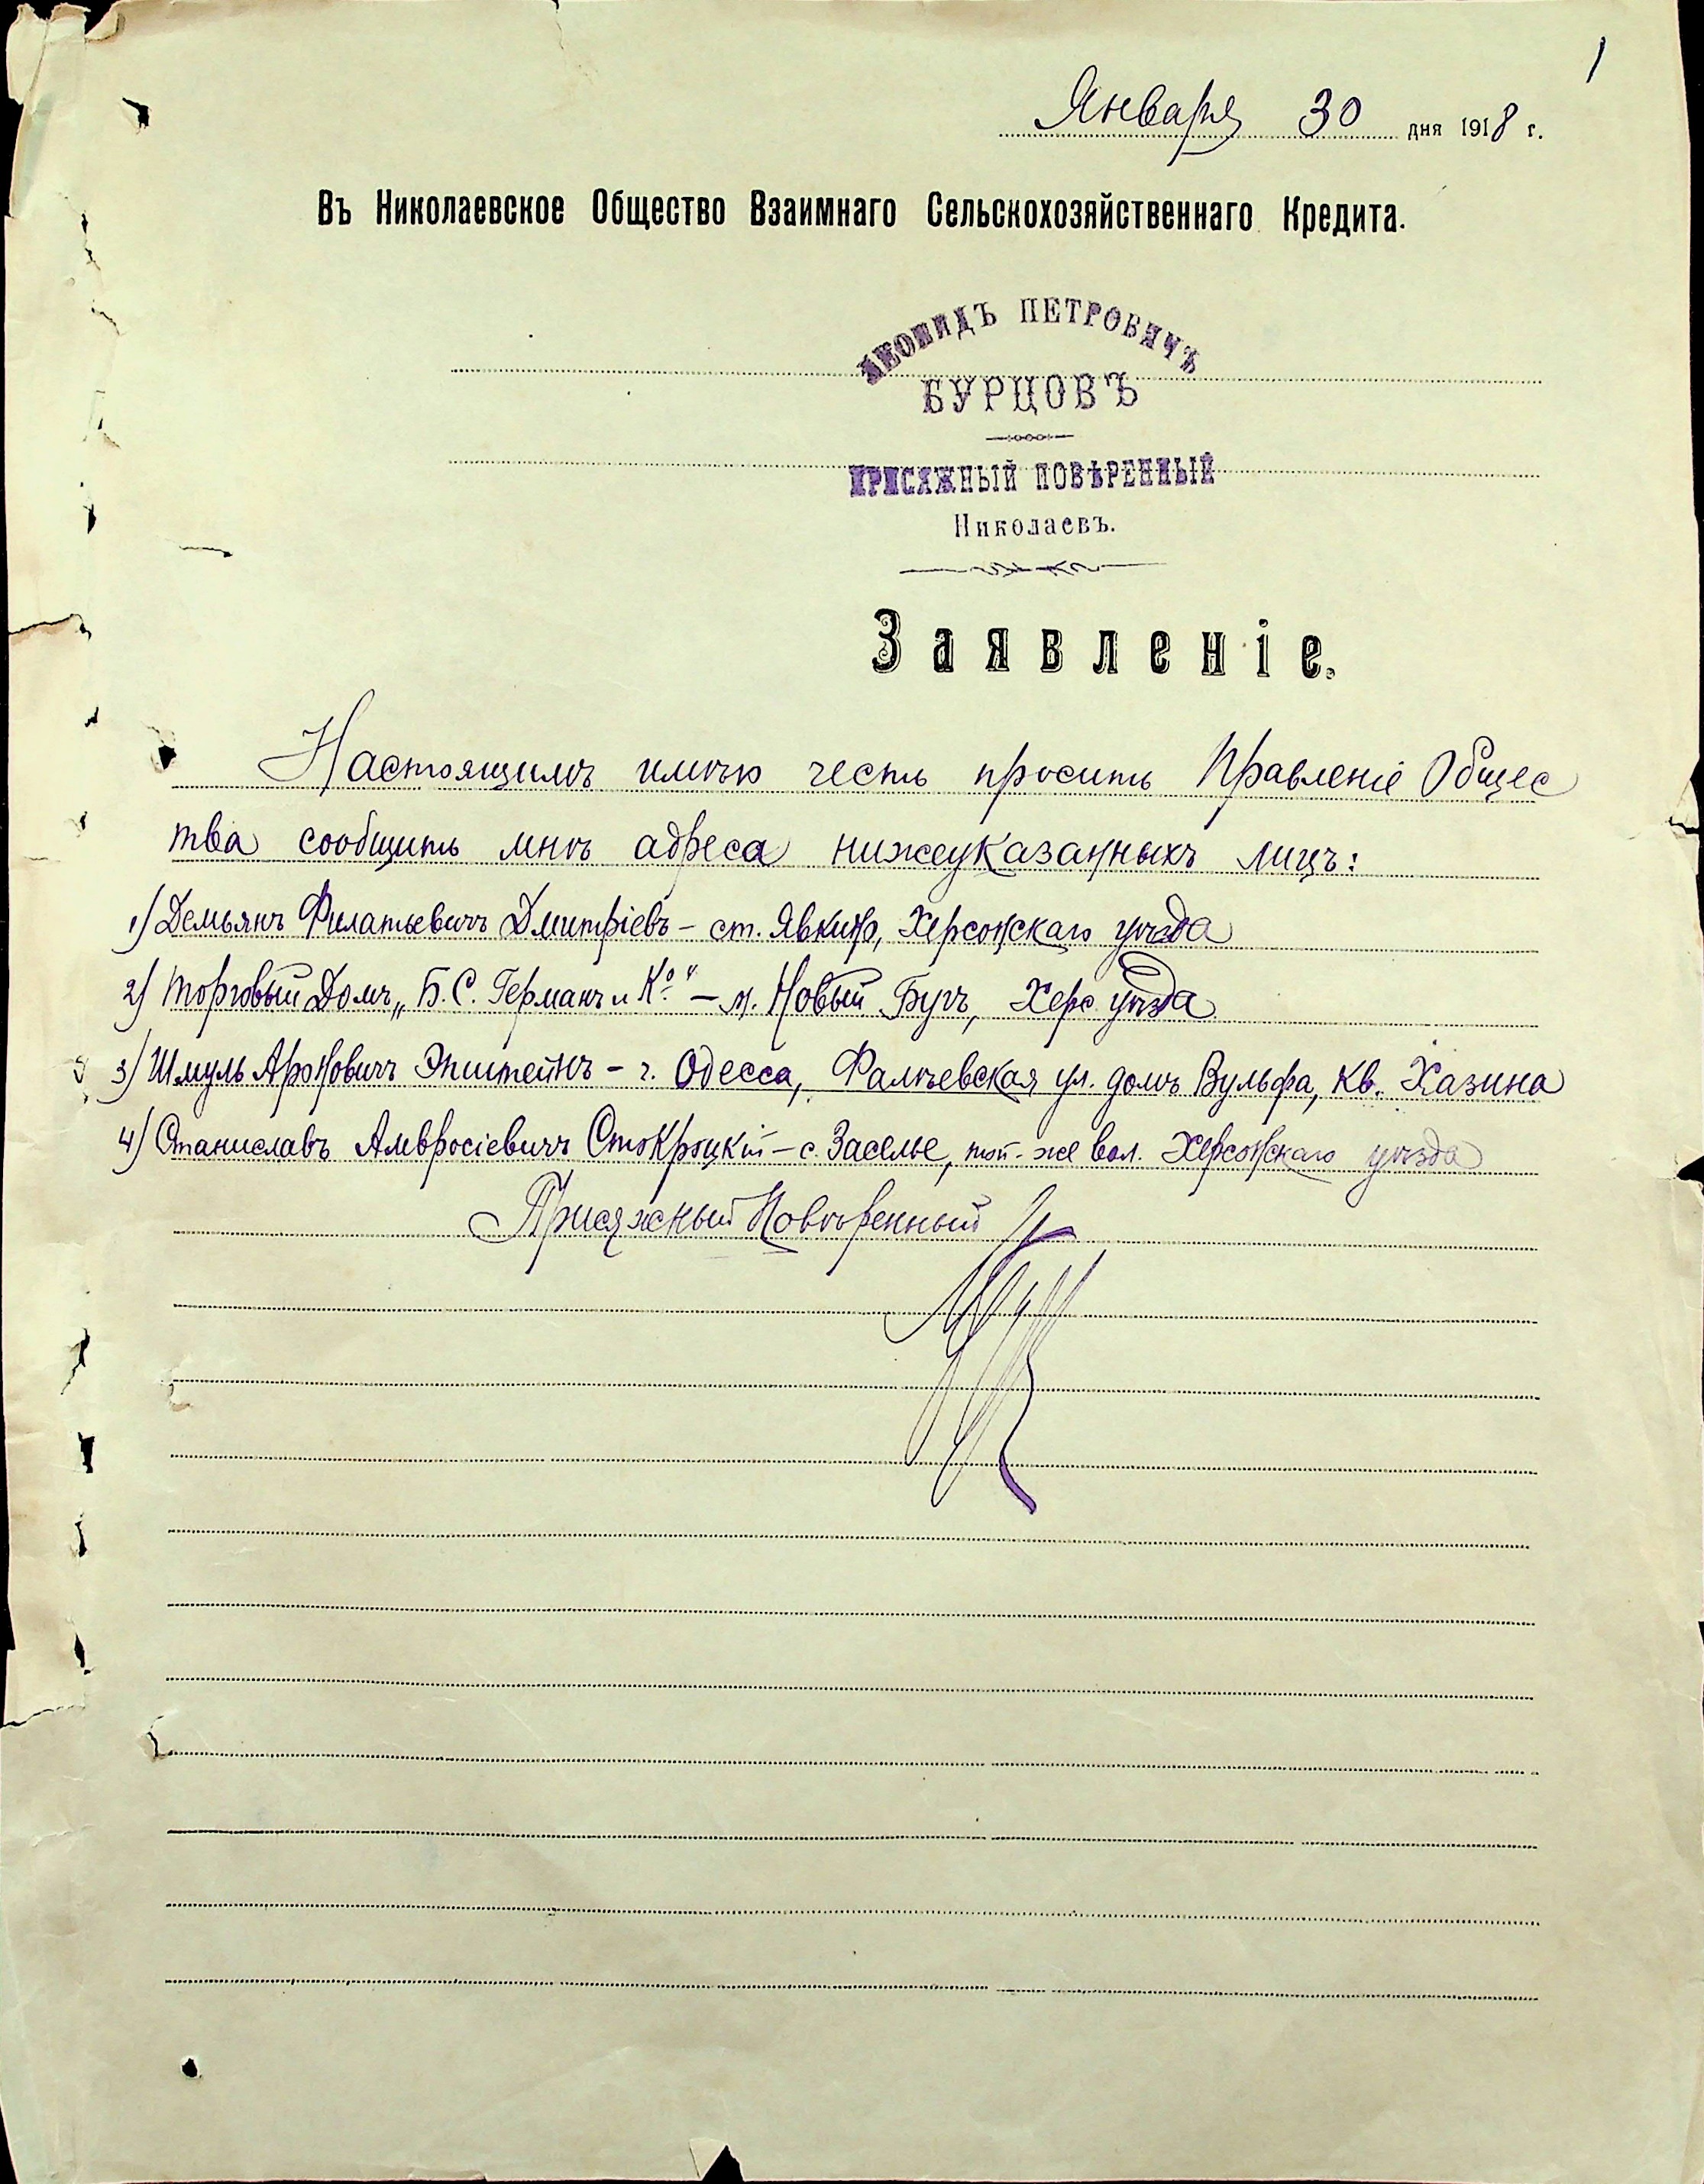 1
Января 30 дня 1918 г.
Въ Николаевское Общество Взаимнаго Сельскохозяйственнаго Кредита.
ЛЕОНИДЪ ПЕТРОВИЧЪ
БУРЦОВЪ
ПРИСЯЖНЫЙ ПОВѢРЕННЫЙ
Николаевъ.
Заявленіе.
Настоящимъ имѣю честь просить Правленіе Общес
тва сообщить мнѣ адреса нижеуказанныхъ лицъ:
1) Демьянъ Филатьевичъ Дмитріевъ – ст. Явкино, Херсонскаго уѣзда
2) Торговый Домъ „Б. С. Германъ и Кº" – м. Новый Бугъ, Херс. уѣзда
3) Шмуль Ароновичъ Эпштейнъ – г. Одесса, Фалѣевская ул. домъ Вульфа, кв. Хазина
4) Станиславъ Амвросіевичъ Стокроцкій – с. Заселье, той-же вол. Херсонскаго уѣзда
Присяжный Повѣренный